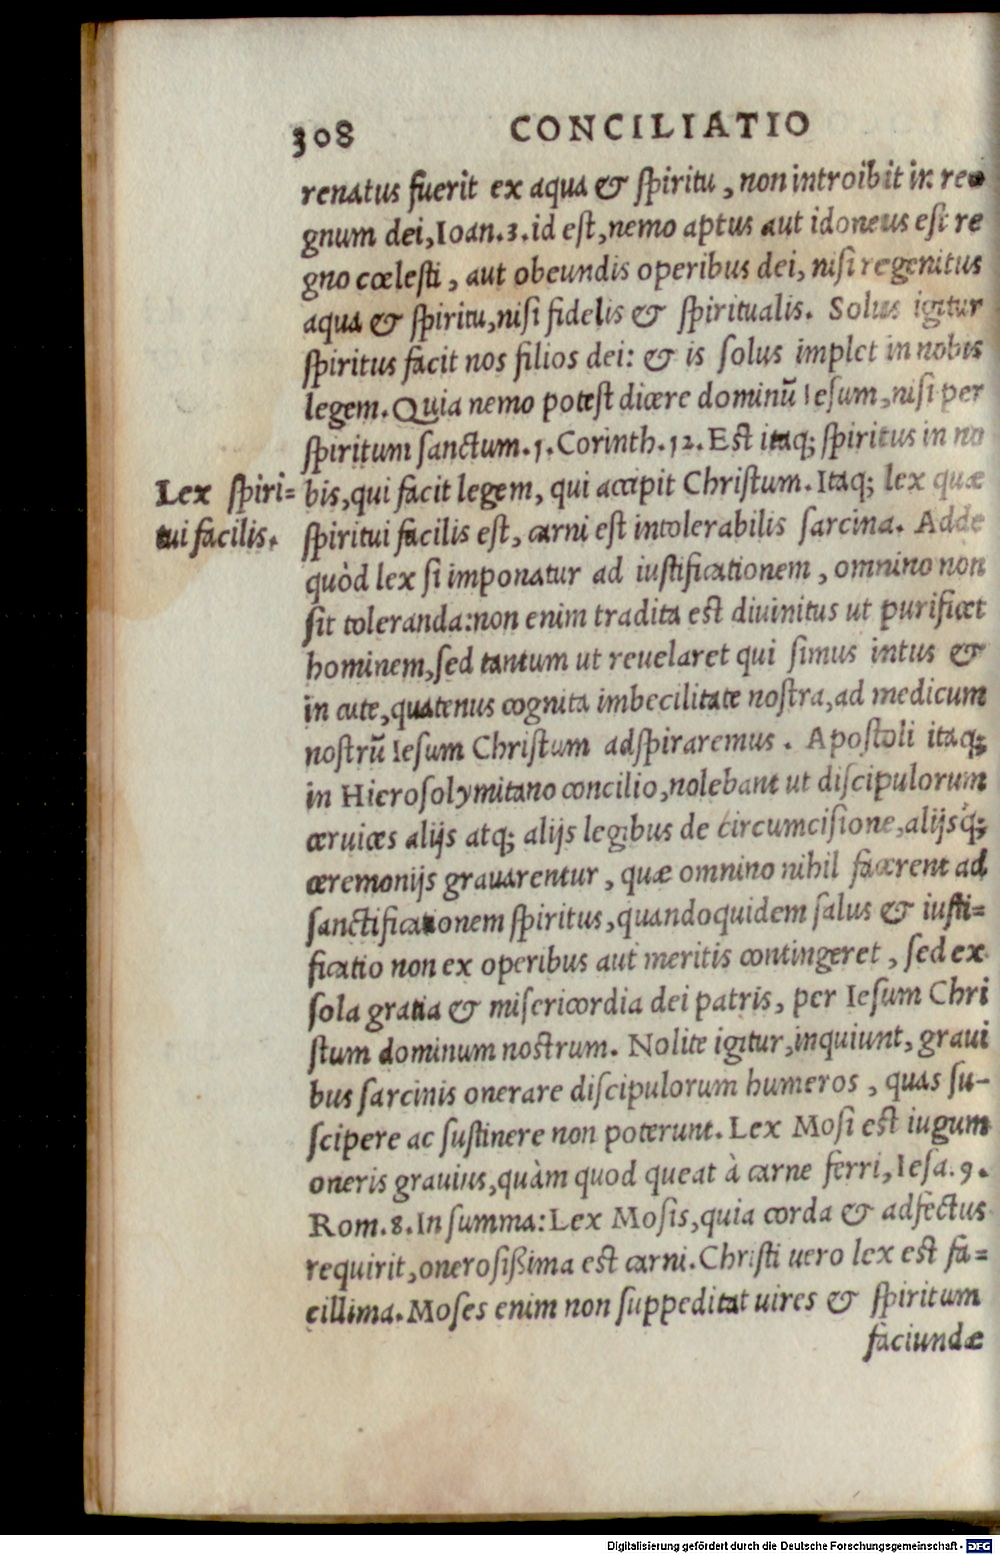 308 CONCILIATIO
renatus fuerit ex aqua & ſpiritu, non introibit in re-
gnum dei, Ioan. 3. id eſt, nemo aptus aut idoneus eſt re
gno cœleſti, aut obeundis operibus dei, niſi regenitus
aqua & ſpiritu, niſi fidelis & ſpiritualis. Solus igitur
ſpiritus facit nos filios dei: & is ſolus implet in nobis
legem. Quia nemo poteſt dicere dominū Ieſum, niſi per
ſpiritum ſanctum. 1. Corinth. 12. Eſt itaq; ſpiritus in no
Lex ſpiri=
tui facilis.
bis, qui facit legem, qui accipit Chriſtum. Itaq; lex quæ
ſpiritui facilis eſt, carni eſt intolerabilis ſarcina. Adde
quòd lex ſi imponatur ad iuſtificationem, omnino non
ſit toleranda: non enim tradita eſt diuinitus ut purificet
hominem, ſed tantum ut reuelaret qui ſimus intus &
in cute, quatenus cognita imbecilitate noſtra, ad medicum
noſtrū Ieſum Chriſtum adſpiraremus. Apoſtoli itaq;
in Hieroſolymitano concilio, nolebant ut diſcipulorum
ceruices alijs atq; alijs legibus de circumciſione, alijsq́;
ceremonijs grauarentur, quæ omnino nihil facerent ad
ſanctificationem ſpiritus, quandoquidem ſalus & iuſti=
ficatio non ex operibus aut meritis contingeret, ſed ex
ſola gratia & miſericordia dei patris, per Ieſum Chri
ſtum dominum noſtrum. Nolite igitur, inquiunt, graui
bus ſarcinis onerare diſcipulorum humeros, quas ſu-
ſcipere ac ſuſtinere non poterunt. Lex Moſi eſt iugum
oneris grauius, quàm quod queat à carne ferri, Ieſa. 9.
Rom. 8. In ſumma: Lex Moſis, quia corda & adfectus
requirit, oneroſißima eſt carni. Chriſti uero lex eſt fa=
cillima. Moſes enim non ſuppeditat uires & ſpiritum
faciundæ
Digitalisierung gefördert durch die Deutsche Forschungsgemeinschaft - DFG